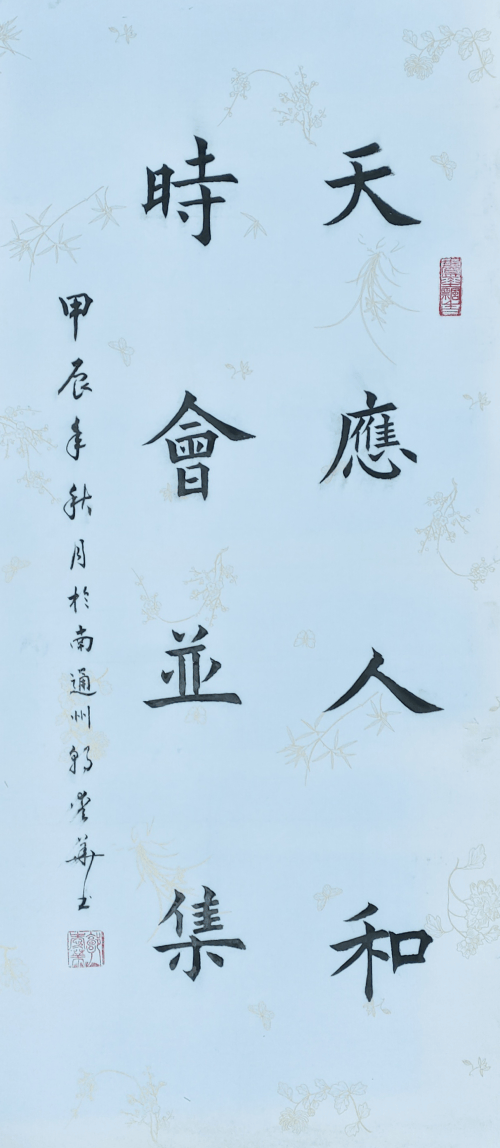 天應人和
時會並集
甲辰年秋月於南通州
華书